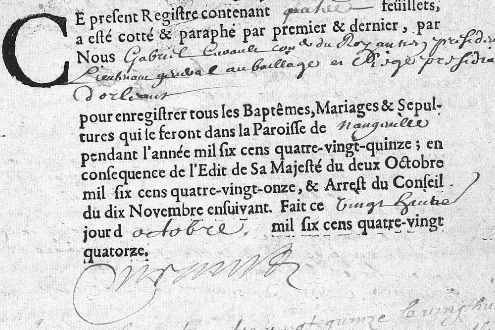 CE present Registre contenant quatre feuillets,
a esté cotté & paraphé par premier & dernier, par
Nous Gabriel Curault coner du Roy ancien presidial
Lieutenant general au bailliage et siege presidial
D'orleans
pour enregistrer tous les Baptêmes, Mariages & Sepul-
tures qui se feront dans la Paroisse de
pendant l'année mil six cens quatre-vingt-quinze; en
consequence de l'Edit de Sa Majesté du deux Octobre
mil six cens quatre-vingt-onze, & Arrest du Conseil
du dix Novembre ensuivant. Fait ce Vingt huitie
jour d octobre. mil six cens quatre-vingt
quatorze.